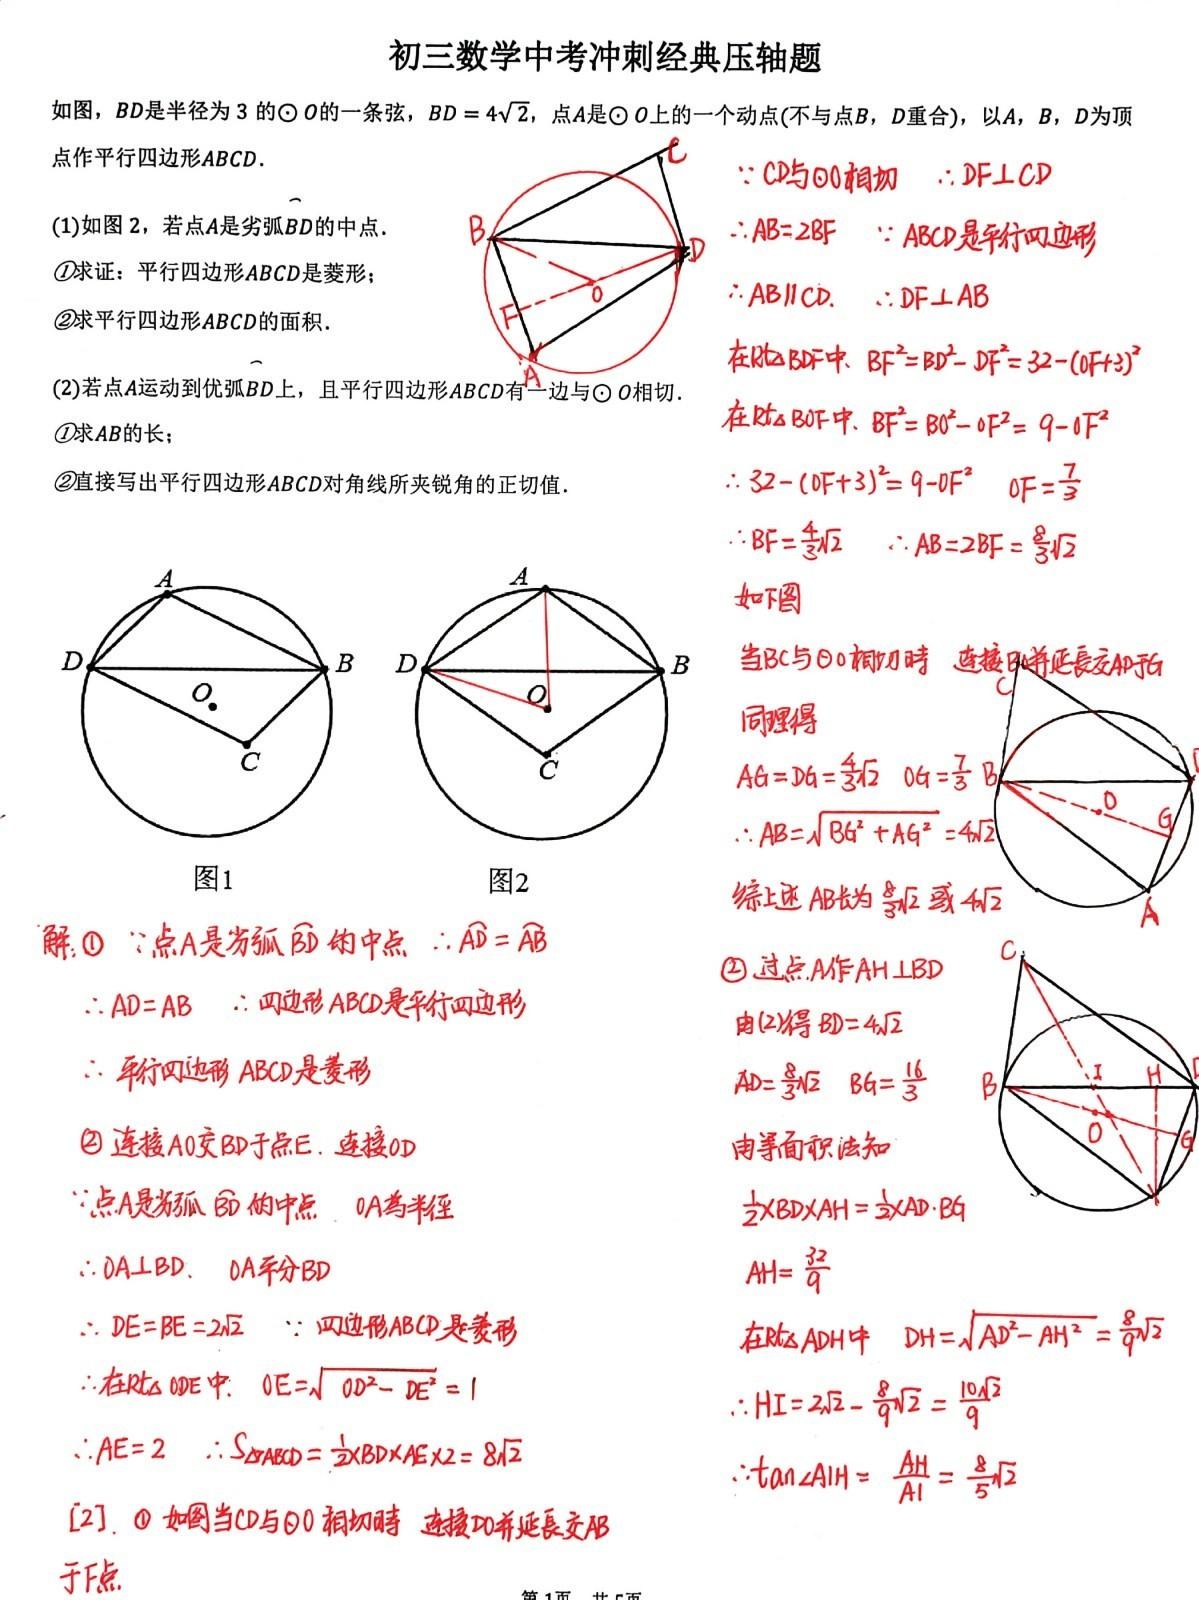 初三数学中考冲刺经典压轴题
如图，BD是半径为 3 的⊙O的一条弦，BD = 4√2，点A是⊙O上的一个动点(不与点B，D重合)，以A，B，D为顶
点作平行四边形ABCD．
(1)如图 2，若点A是劣弧BD的中点．
①求证：平行四边形ABCD是菱形；
②求平行四边形ABCD的面积．
(2)若点A运动到优弧BD上，且平行四边形ABCD有一边与⊙O相切．
①求AB的长；
②直接写出平行四边形ABCD对角线所夹锐角的正切值．
C
B
D
O
F
A
A
D
B
O
C
图1
A
D
B
O
C
图2
解:① ∵点A是劣弧BD的中点 ∴AD=AB
∴AD=AB ∴四边形ABCD是平行四边形
∴ 平行四边形ABCD是菱形
② 连接AO交BD于点E. 连接OD
∵点A是劣弧BD的中点 OA为半径
∴OA⊥BD. OA平分BD
∴ DE=BE=2√2 ∵ 四边形ABCD是菱形
∴在Rt△ODE中. OE=√(OD²-DE²)=1
∴AE=2 ∴S▱ABCD=1/2×BD×AE×2=8√2
[2]. ① 如图当CD与⊙O相切时 连接DO并延长交AB
于F点
∵ CD与⊙O相切 ∴DF⊥CD
∴AB=2BF ∵ ABCD是平行四边形
∴AB∥CD. ∴DF⊥AB
在Rt△BDF中. BF²=BD²-DF²=32-(OF+3)²
在Rt△BOF中. BF²=BO²-OF²=9-OF²
∴32-(OF+3)²=9-OF² OF=7/3
∴BF=4/3√2 ∴AB=2BF=8/3√2
如下图
当BC与⊙O相切时 连接BO并延长交AD于G
同理得
AG=DG=4/3√2 OG=7/3
∴AB=√(BG²+AG²)=4√2
综上述 AB长为8/3√2或4√2
C
B
O
G
A
② 过点A作AH⊥BD
由(2)得BD=4√2
AD=8/3√2 BG=16/3
由等面积法知
1/2×BD×AH=1/2×AD·BG
AH=32/9
在Rt△ADH中 DH=√(AD²-AH²)=8/9√2
∴HI=2√2-8/9√2=10√2/9
∴tan∠AIH=AH/AI=8/5√2
C
B
I
H
O
G